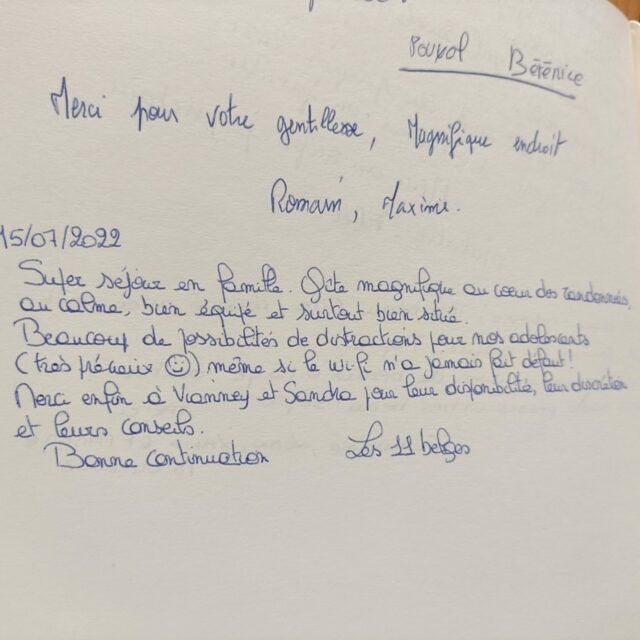 Bérénice
Merci pour votre gentillesse, Magnifique endroit
Romain, Maxime.
15/07/2022
Super séjour en famille. Gîte magnifique au cœur des randonnées,
au calme, bien équipé et surtout bien situé.
Beaucoup de possibilités de distractions pour nos adolescents
(très précieux ☺) même si le wifi n'a jamais fait défaut!
Merci enfin à Vianney et Sandra pour leur disponibilité, leur discrétion
et leurs conseils.
Bonne continuation Les 11 belges